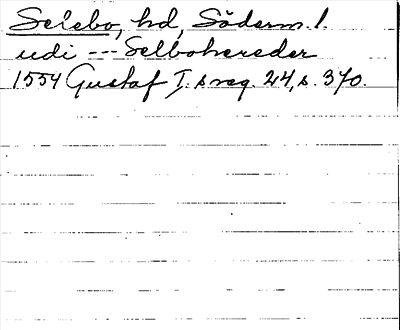 Selebo, hd, Söderm. l.
udi --- Selbohereder
1554 Gustaf I:s reg. 24, s. 370.